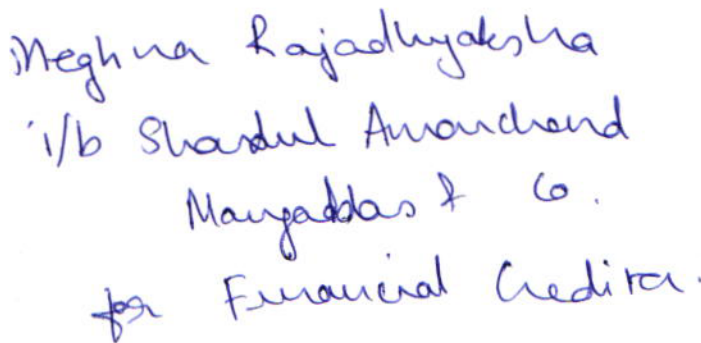 Meghna Rajadhyaksha
i/b Shardul Amarchand
Mangaldas & Co.
for Financial Creditor.